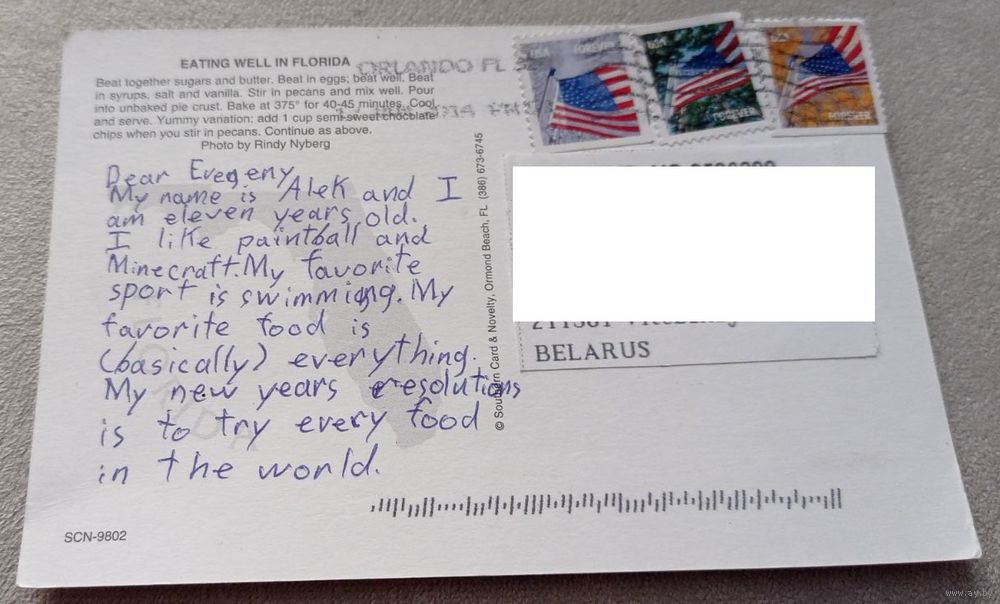 EATING WELL IN FLORIDA
Beat together sugars and butter. Beat in eggs; beat well. Beat
in syrups, salt and vanilla. Stir in pecans and mix well. Pour
into unbaked pie crust. Bake at 375° for 40-45 minutes. Cool
and serve. Yummy variation: add 1 cup semi-sweet chocolate
chips when you stir in pecans. Continue as above.
Photo by Rindy Nyberg
ORLANDO FL
USA FOREVER
USA
FOREVER
USA
FOREVER
Dear Evegeny
My name is Alek and I
am eleven years old.
I like paintball and
Minecraft. My favorite
sport is swimming. My
favorite food is
(basically) everything.
My new years resolutions
is to try every food
in the world.
© Southern Card & Novelty, Ormond Beach, FL (386) 673-6745
BELARUS
SCN-9802
www.ay.by